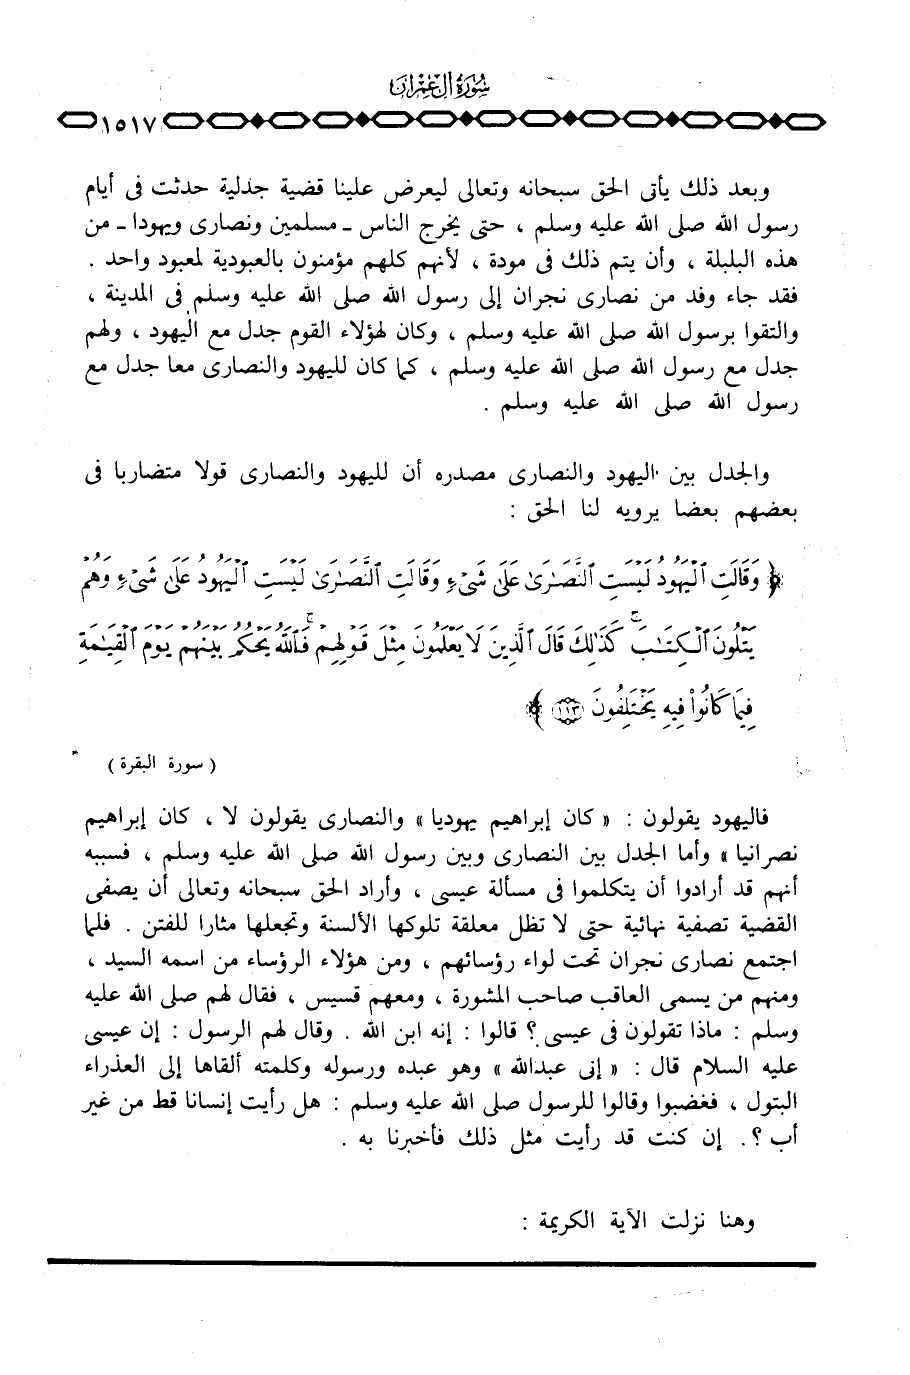 سُورَةُ آلِ عِمْرَانَ
١٥١٧
وبعد ذلك يأتى الحق سبحانه وتعالى ليعرض علينا قضية جدلية حدثت فى أيام
رسول الله صلى الله عليه وسلم ، حتى يخرج الناس ـ مسلمين ونصارى ويهودا ـ من
هذه البلبلة ، وأن يتم ذلك فى مودة ، لأنهم كلهم مؤمنون بالعبودية لمعبود واحد .
فقد جاء وفد من نصارى نجران إلى رسول الله صلى الله عليه وسلم فى المدينة ،
والتقوا برسول الله صلى الله عليه وسلم ، وكان لهؤلاء القوم جدل مع اليهود ، ولهم
جدل مع رسول الله صلى الله عليه وسلم ، كما كان لليهود والنصارى معا جدل مع
رسول الله صلى الله عليه وسلم .
والجدل بين اليهود والنصارى مصدره أن لليهود والنصارى قولا متضاربا فى
بعضهم بعضا يرويه لنا الحق :
﴿ وَقَالَتِ ٱلْيَهُودُ لَيْسَتِ ٱلنَّصَـٰرَىٰ عَلَىٰ شَىْءٍ وَقَالَتِ ٱلنَّصَـٰرَىٰ لَيْسَتِ ٱلْيَهُودُ عَلَىٰ شَىْءٍ وَهُمْ
يَتْلُونَ ٱلْكِتَـٰبَ ۗ كَذَٰلِكَ قَالَ ٱلَّذِينَ لَا يَعْلَمُونَ مِثْلَ قَوْلِهِمْ ۚ فَٱللَّهُ يَحْكُمُ بَيْنَهُمْ يَوْمَ ٱلْقِيَـٰمَةِ
فِيمَا كَانُوا۟ فِيهِ يَخْتَلِفُونَ ١١٣ ﴾
( سورة البقرة )
فاليهود يقولون : « كان إبراهيم يهوديا » والنصارى يقولون لا ، كان إبراهيم
نصرانيا » وأما الجدل بين النصارى وبين رسول الله صلى الله عليه وسلم ، فسببه
أنهم قد أرادوا أن يتكلموا فى مسألة عيسى ، وأراد الحق سبحانه وتعالى أن يصفى
القضية تصفية نهائية حتى لا تظل معلقة تلوكها الألسنة وتجعلها مثارا للفتن . فلما
اجتمع نصارى نجران تحت لواء رؤسائهم ، ومن هؤلاء الرؤساء من اسمه السيد ،
ومنهم من يسمى العاقب صاحب المشورة ، ومعهم قسيس ، فقال لهم صلى الله عليه
وسلم : ماذا تقولون فى عيسى ؟ قالوا : إنه ابن الله . وقال لهم الرسول : إن عيسى
عليه السلام قال : « إنى عبدالله » وهو عبده ورسوله وكلمته ألقاها إلى العذراء
البتول ، فغضبوا وقالوا للرسول صلى الله عليه وسلم : هل رأيت إنسانا قط من غير
أب ؟. إن كنت قد رأيت مثل ذلك فأخبرنا به .
وهنا نزلت الآية الكريمة :